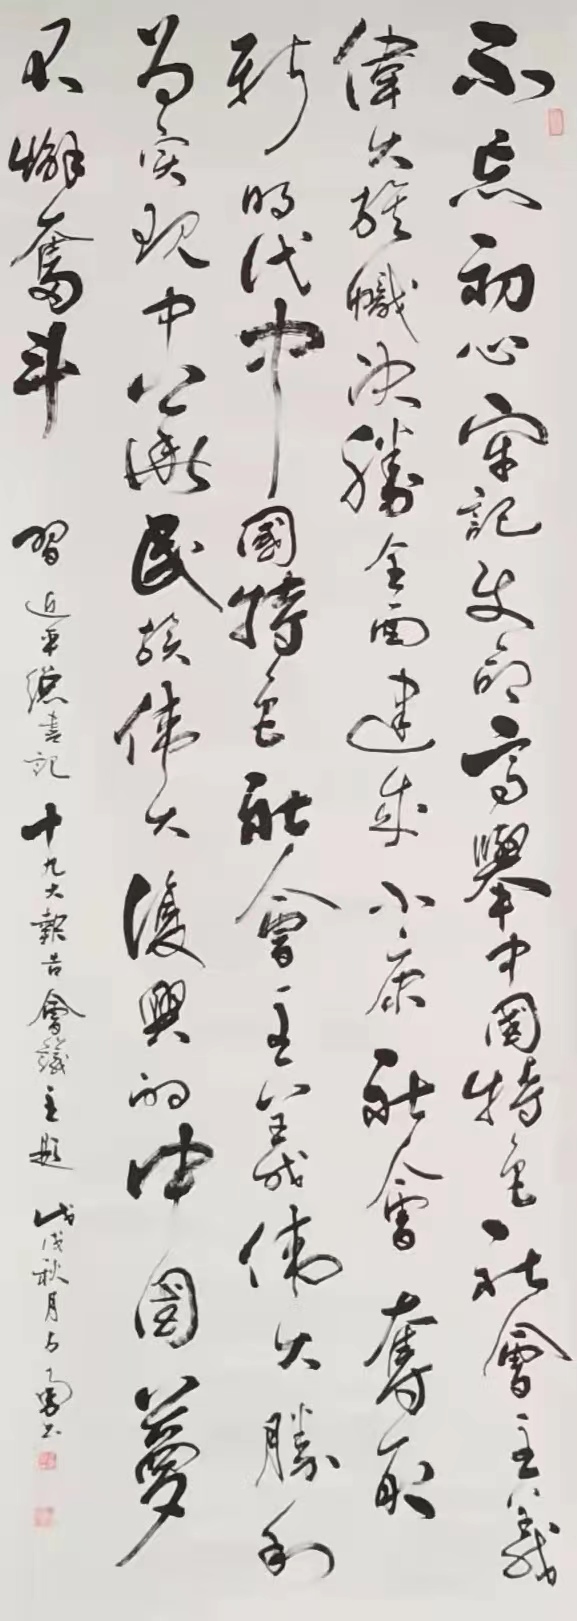 不忘初心牢記使命高舉中國特色社會主義
偉大旗幟决勝全面建成小康社會奪取
新時代中國特色社會主義偉大勝利
为实现中华民族伟大復興的中國夢
不懈奮斗
習近平總書記十九大報告會議主題 戊戌秋月